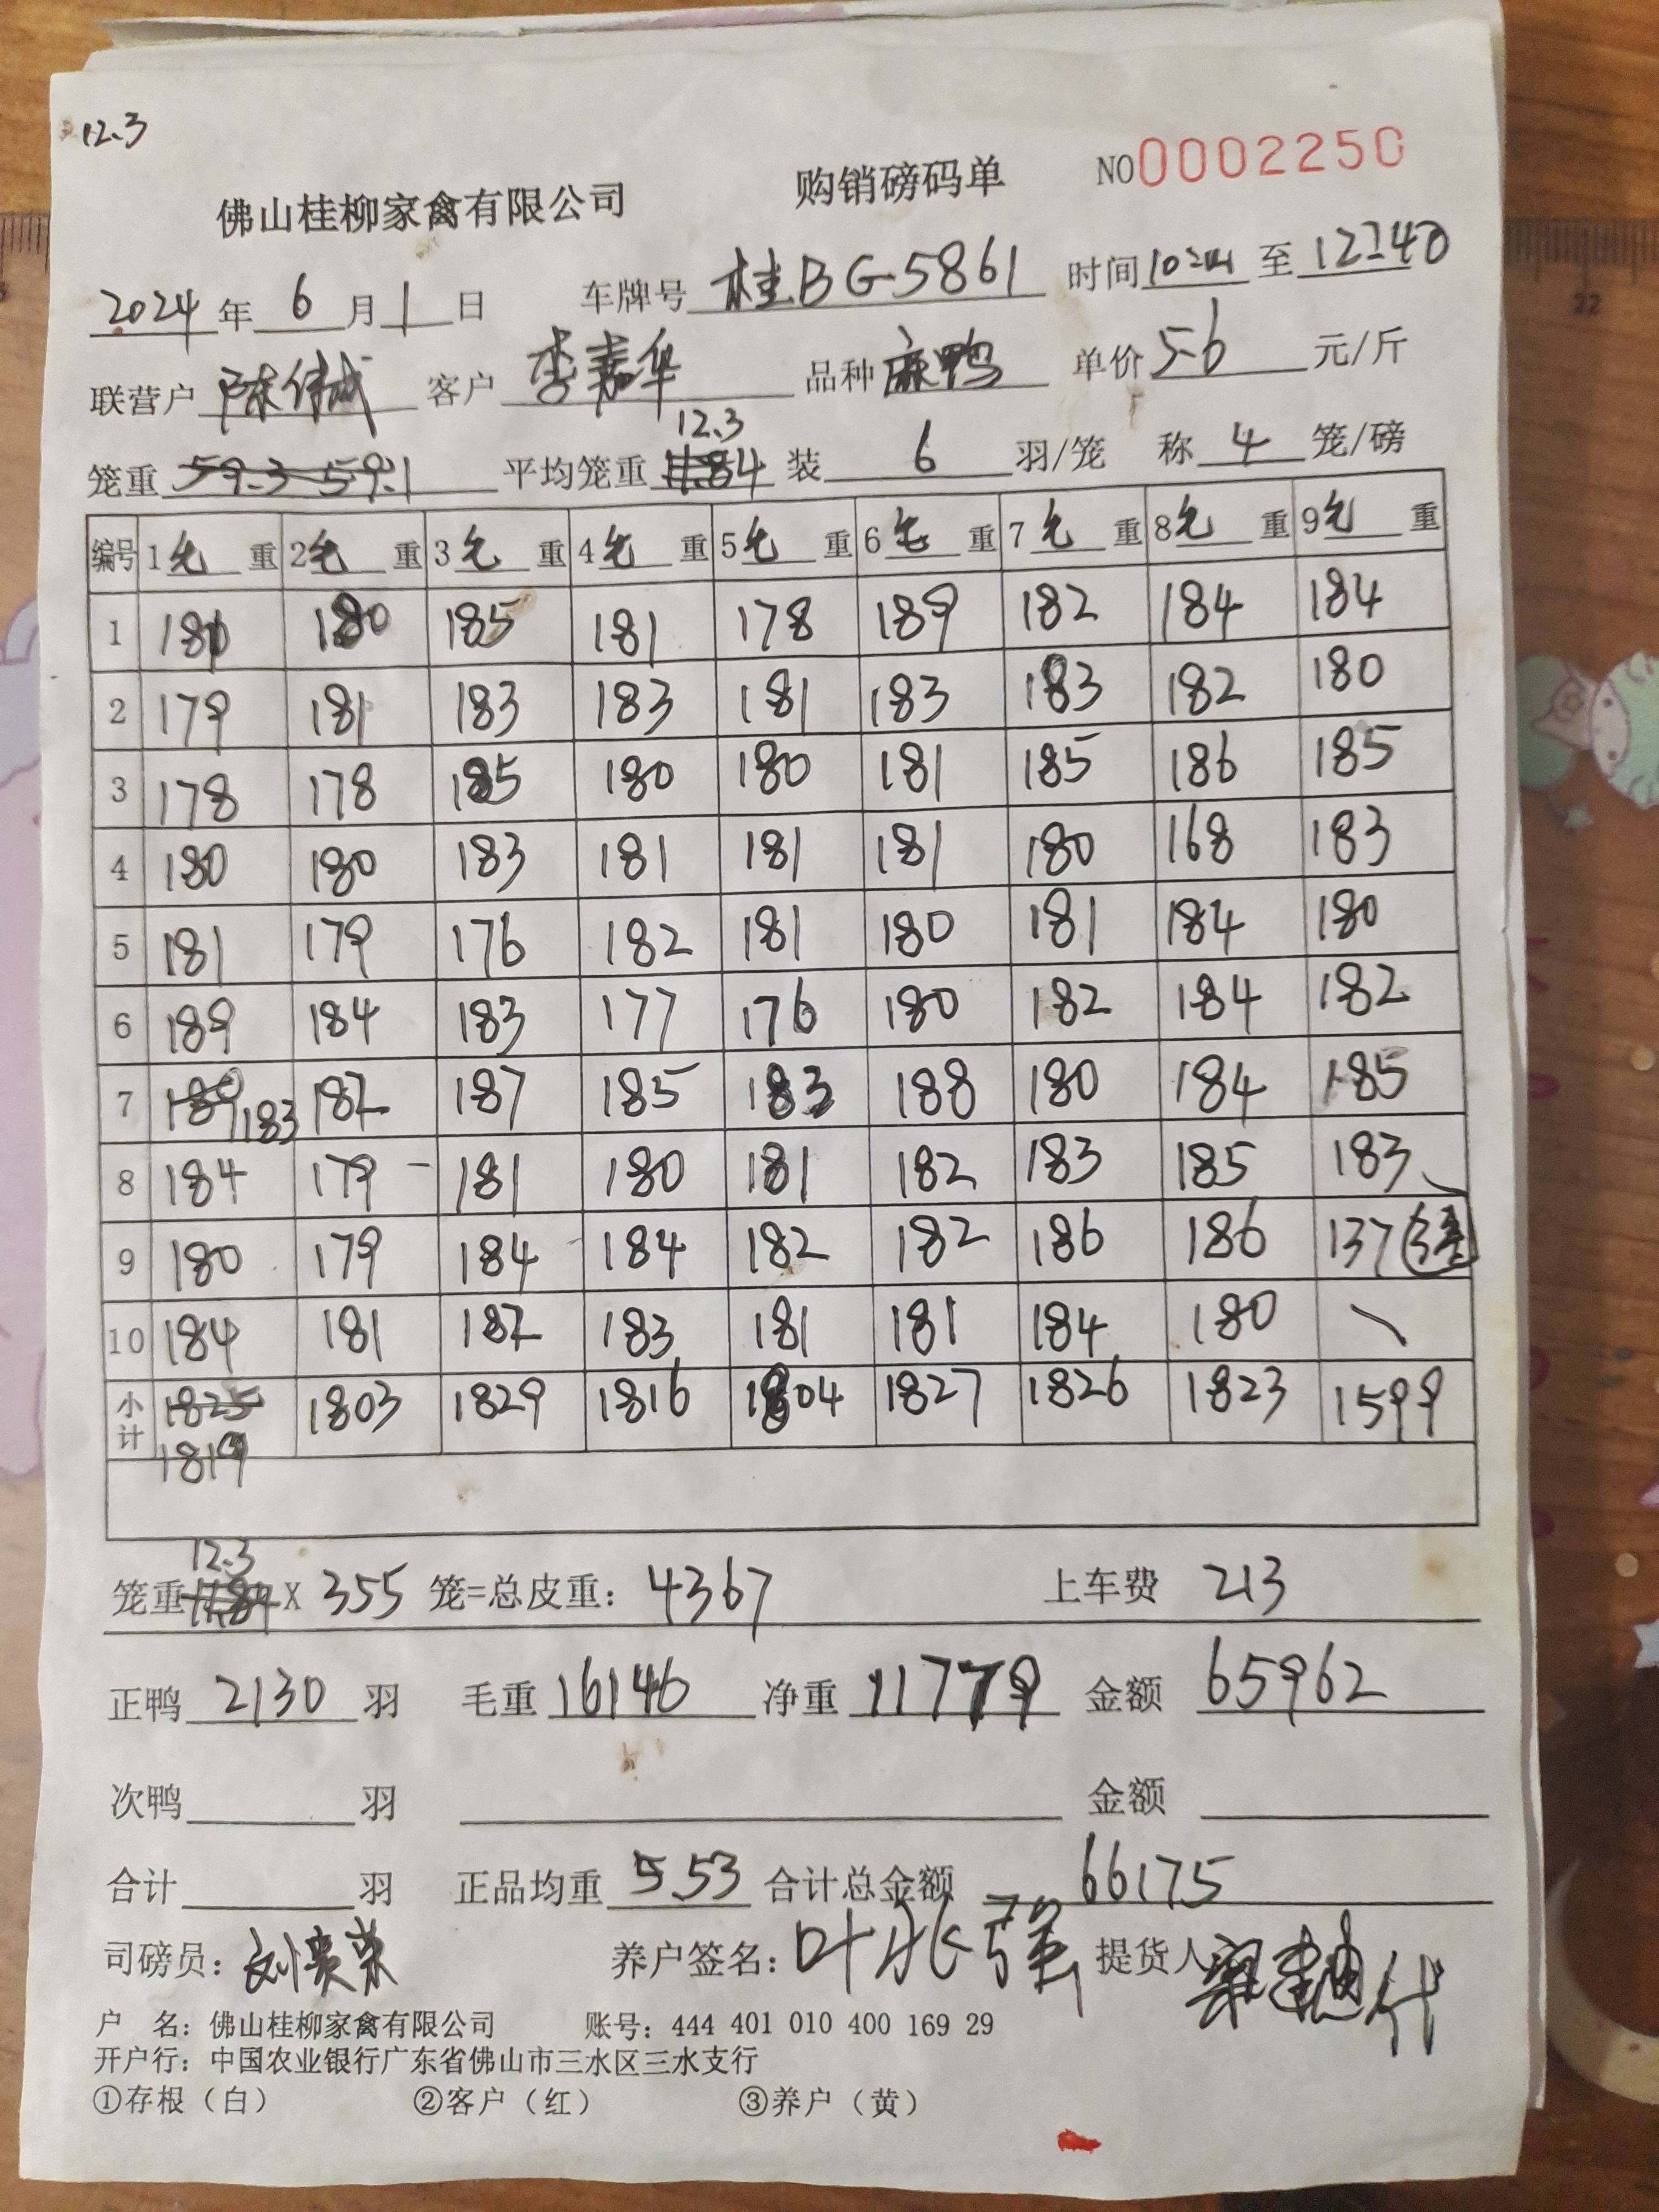 12.3
佛山桂柳家禽有限公司 购销磅码单 NO0002250
2024年6月1日 车牌号 桂BG5861 时间 至 12:40
联营户 陈伟斌 客户 李嘉华 品种 麻鸭 单价 5.6 元/斤
12.3
笼重 59.3 59.1 平均笼重 11.84 装 6 羽/笼 称 4 笼/磅
编号 1毛重 2毛重 3毛重 4毛重 5毛重 6毛重 7毛重 8毛重 9毛重
1 181 180 185 181 178 189 182 184 184
2 179 181 183 183 181 183 183 182 180
3 178 178 185 180 180 181 185 186 185
4 180 180 183 181 181 181 180 168 183
5 181 179 176 182 181 180 181 184 180
6 189 184 183 177 176 180 182 184 182
7 189 183 182 187 185 183 188 180 184 185
8 184 179 181 180 181 182 183 185 183
9 180 179 184 184 182 182 186 186 137
10 184 181 182 183 181 181 184 180
小计 1825 1803 1829 1816 1804 1827 1826 1823 1599
1819
12.3
笼重 11.84 X 355 笼=总皮重: 4367 上车费 213
正鸭 2130 羽 毛重 16146 净重 11779 金额 65962
次鸭 羽 金额
合计 羽 正品均重 5.53 合计总金额 66175
司磅员: 刘贵荣 养户签名: 叶水强 提货人 代
户 名: 佛山桂柳家禽有限公司 账号: 444 401 010 400 169 29
开户行: 中国农业银行广东省佛山市三水区三水支行
①存根(白) ②客户(红) ③养户(黄)